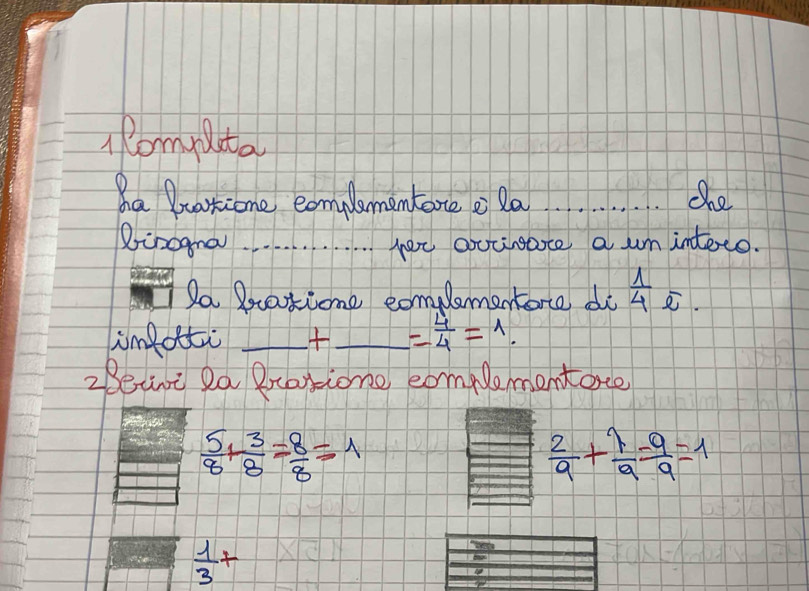 1 Completa
La frazione complementare è la ............ che
bisogna .............. per arrivare a un intero.
la frazione complementare di 1/4 è .
infatti ____ + ____ = 4/4 = 1.
2 Scrivi la frazione complementare
5/8 + 3/8 = 8/8 = 1 2/9 + 7/9 = 9/9 = 1
1/3 +